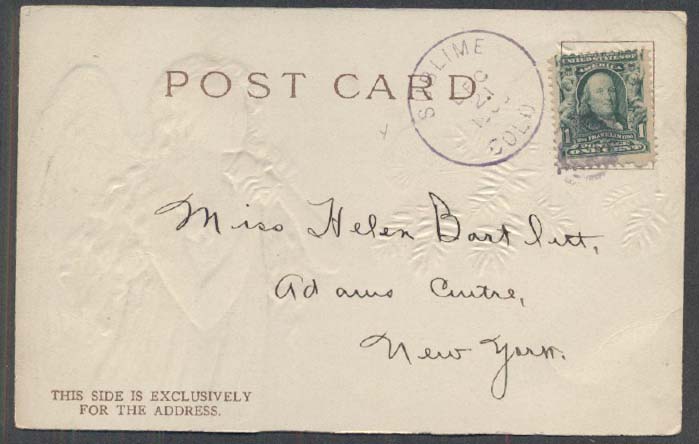 POST CARD
SUBLIME
DEC
27
COLO
UNITED STATES OF
AMERICA
1 FRANKLIN 1
POSTAGE
ONE CENT
Miss Helen Bartlett,
Adams Centre,
New York.
THIS SIDE IS EXCLUSIVELY
FOR THE ADDRESS.